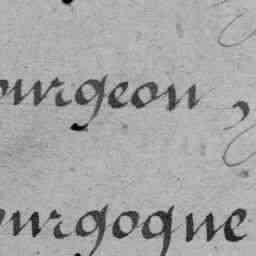 ourgeon
ourgogne